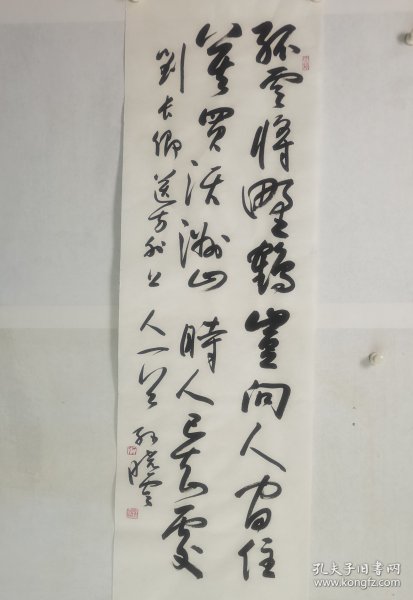 孤云将野鹤岂向人间住
莫买沃洲山时人已知处
刘长卿送方外上人一首孙晓云
孔夫子旧书网